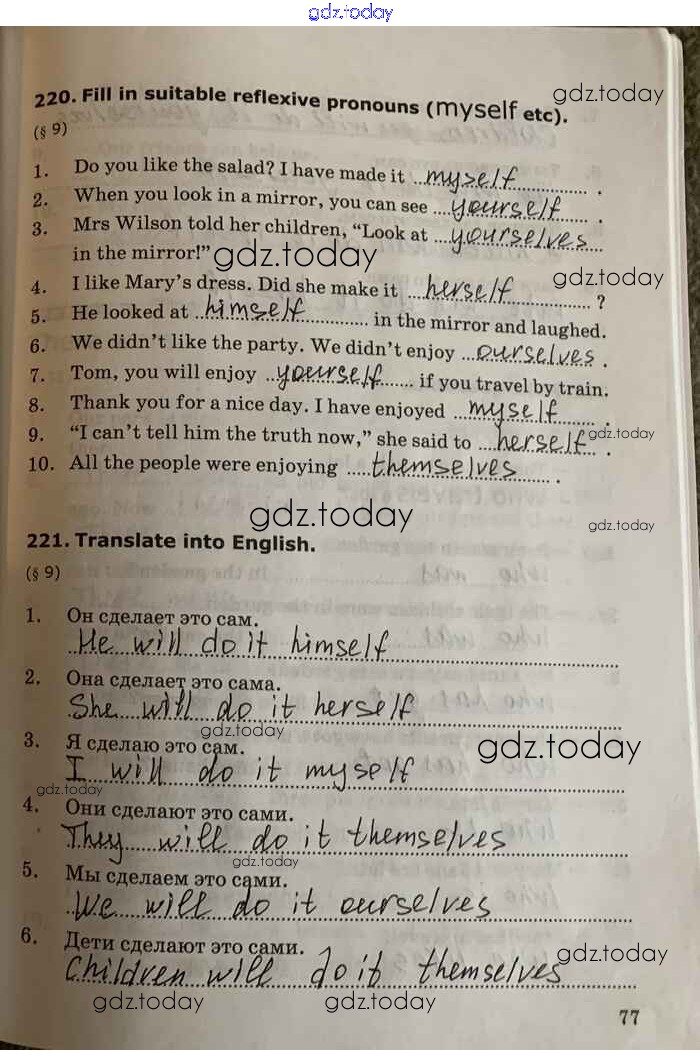 gdz.today
220. Fill in suitable reflexive pronouns (myself etc).
gdz.today
(§ 9)
1. Do you like the salad? I have made it ...myself.............. .
2. When you look in a mirror, you can see ...yourself..... .
3. Mrs Wilson told her children, “Look at ...yourselves...
in the mirror!”
gdz.today
gdz.today
4. I like Mary’s dress. Did she make it ...herself.............. ?
5. He looked at ..himself............. in the mirror and laughed.
6. We didn’t like the party. We didn’t enjoy ...ourselves. .
7. Tom, you will enjoy ..yourself...... if you travel by train.
8. Thank you for a nice day. I have enjoyed ...myself...... .
gdz.today
9. “I can’t tell him the truth now,” she said to ...herself... .
10. All the people were enjoying ....themselves........ .
gdz.today
gdz.today
221. Translate into English.
(§ 9)
1. Он сделает это сам.
He will do it himself
2. Она сделает это сама.
She will do it herself
gdz.today
3. Я сделаю это сам.
gdz.today
I will do it myself
gdz.today
4. Они сделают это сами.
They will do it themselves
gdz.today
5. Мы сделаем это сами.
We will do it ourselves
6. Дети сделают это сами.
gdz.today
Children will do it themselves
gdz.today gdz.today
77